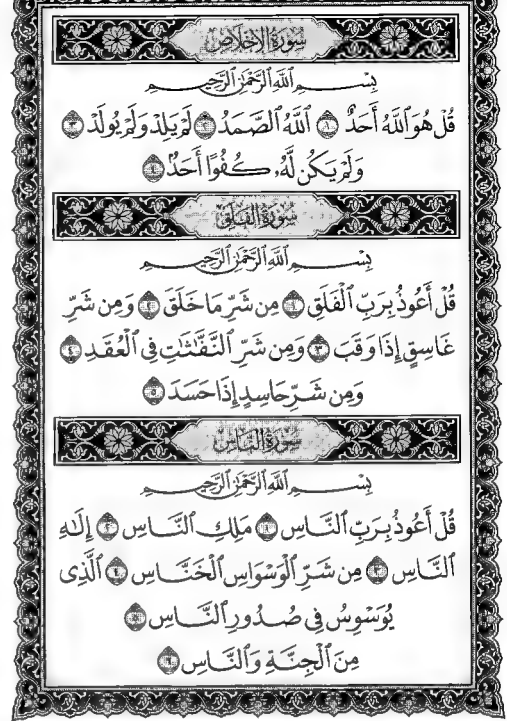 سُورَةُ الإِخْلَاصِ
بِسْمِ ٱللَّهِ ٱلرَّحْمَٰنِ ٱلرَّحِيمِ
قُلْ هُوَ ٱللَّهُ أَحَدٌ ۝١ ٱللَّهُ ٱلصَّمَدُ ۝٢ لَمْ يَلِدْ وَلَمْ يُولَدْ ۝٣
وَلَمْ يَكُن لَّهُۥ كُفُوًا أَحَدٌۢ ۝٤
سُورَةُ الفَلَقِ
بِسْمِ ٱللَّهِ ٱلرَّحْمَٰنِ ٱلرَّحِيمِ
قُلْ أَعُوذُ بِرَبِّ ٱلْفَلَقِ ۝١ مِن شَرِّ مَا خَلَقَ ۝٢ وَمِن شَرِّ
غَاسِقٍ إِذَا وَقَبَ ۝٣ وَمِن شَرِّ ٱلنَّفَّٰثَٰتِ فِى ٱلْعُقَدِ ۝٤
وَمِن شَرِّ حَاسِدٍ إِذَا حَسَدَ ۝٥
سُورَةُ النَّاسِ
بِسْمِ ٱللَّهِ ٱلرَّحْمَٰنِ ٱلرَّحِيمِ
قُلْ أَعُوذُ بِرَبِّ ٱلنَّاسِ ۝١ مَلِكِ ٱلنَّاسِ ۝٢ إِلَٰهِ
ٱلنَّاسِ ۝٣ مِن شَرِّ ٱلْوَسْوَاسِ ٱلْخَنَّاسِ ۝٤ ٱلَّذِى
يُوَسْوِسُ فِى صُدُورِ ٱلنَّاسِ ۝٥
مِنَ ٱلْجِنَّةِ وَٱلنَّاسِ ۝٦